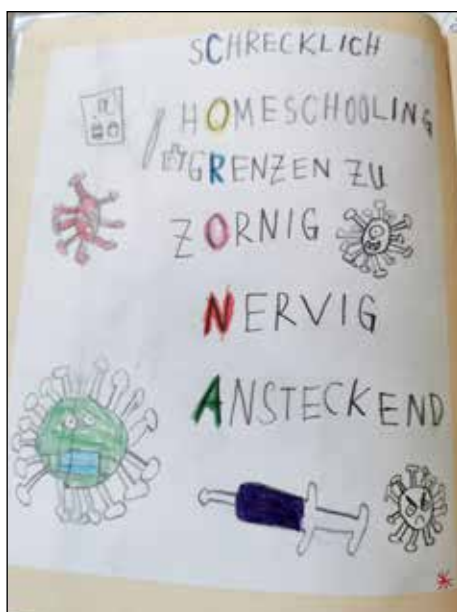 SCHRECKLICH
HOMESCHOOLING
GRENZEN ZU
ZORNIG
NERVIG
ANSTECKEND